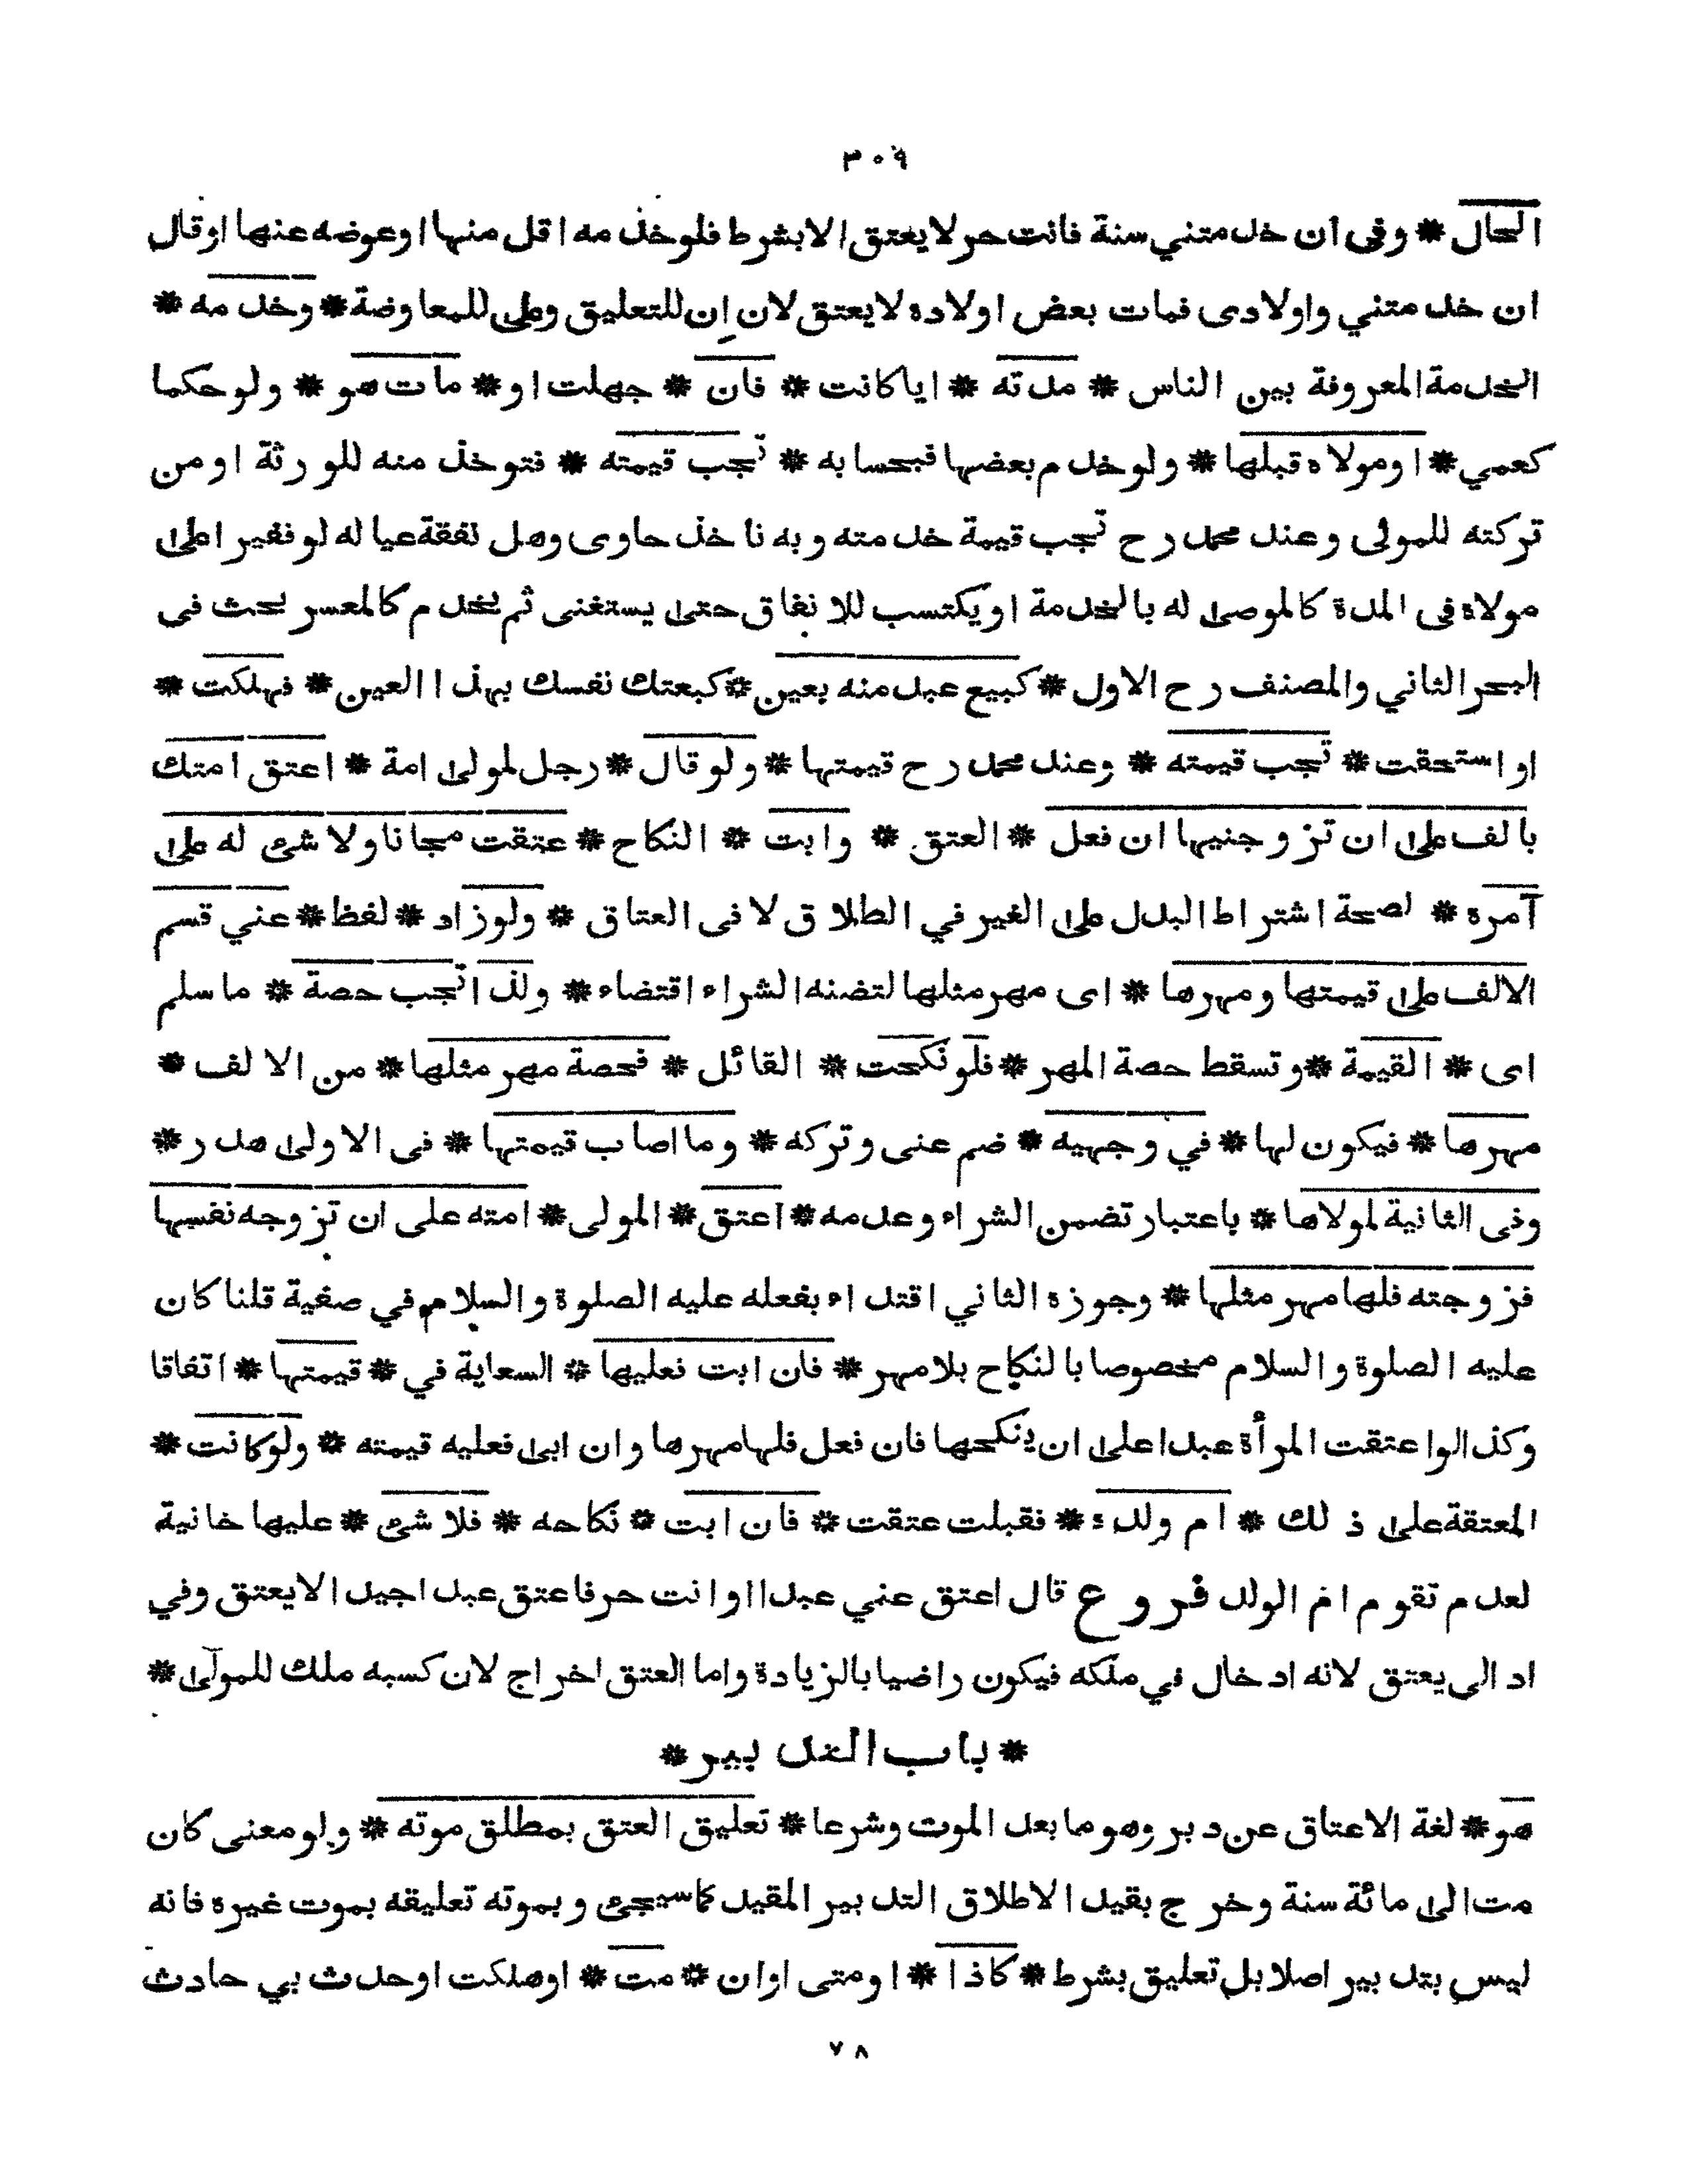 ٣٠٩
الحال * وفى ان خدمتني سنة فانت حر لا يعتق الا بشرط فلو خدمه اقل منها اوعوضه عنها اوقال
ان خدمتني واولادى فمات بعض اولاده لا يعتق لان اِن للتعليق وعلى للمعاوضة * وخدمه *
الخدمة المعروفة بين الناس * مدته * ايا كانت * فان * جهلت او * مات هو * ولو حكما
كعمي * اومولاه قبلها * ولو خدم بعضها فبحسابه * تجب قيمته * فتوخذ منه للورثة اومن
تركته للمولى وعند محمد رح تجب قيمة خدمته وبه ناخذ حاوى وهل نفقة عياله لو فقيرا على
مولاه فى المدة كالموصى له بالخدمة او يكتسب للانفاق حتى يستغنى ثم يخدم كالمعسر بحث فى
البحر الثاني والمصنف رح الاول * كبيع عبد منه بعين * كبعتك نفسك بهذا العين * فهلكت *
او استحقت * تجب قيمته * وعند محمد رح قيمتها * ولو قال * رجل لمولى امة * اعتق امتك
بالف على ان تزوجنيها ان فعل * العتق * وابت * النكاح * عتقت مجانا ولا شئ له على
آمره * لصحة اشتراط البدل على الغير في الطلاق لا فى العتاق * ولو زاد * لفظ * عني قسم
الالف على قيمتها ومهرها * اى مهر مثلها لتضنه الشراء اقتضاء * ولذا تجب حصة * ما سلم
اى * القيمة * وتسقط حصة المهر * فلو نكحت * القائل * فحصة مهر مثلها * من الالف *
مهرها * فيكون لها * في وجهيه * ضم عنى وتركه * وما اصاب قيمتها * فى الاولى هدر *
وفى الثانية لمولاها * باعتبار تضمن الشراء وعدمه * اعتق * المولى * امته على ان تزوجه نفسها
فزوجته فلها مهر مثلها * وجوزه الثاني اقتداء بفعله عليه الصلوة والسلام في صفية قلنا كان
عليه الصلوة والسلام مخصوصا بالنكاح بلا مهر * فان ابت فعليها * السعاية في * قيمتها * اتفاقا
وكذا لو اعتقت المرأة عبدا على ان ينكحها فان فعل فلها مهرها وان ابى فعليه قيمته * ولو كانت *
المعتقة على ذلك * ام ولده * فقبلت عتقت * فان ابت * نكاحه * فلا شئ * عليها خانية
لعدم تقوم ام الولد فروع قال اعتق عني عبدا وانت حر فاعتق عبدا جيدا لا يعتق وفي
اد الى يعتق لانه ادخال في ملكه فيكون راضيا بالزيادة واما العتق اخراج لان كسبه ملك للمولى *
* باب التدبير *
هو * لغة الاعتاق عن دبر وهو ما بعد الموت وشرعا * تعليق العتق بمطلق موته * ولو معنى كان
مت الى مائة سنة وخرج بقيد الاطلاق التدبير المقيد كما سيجئ وبموته تعليقه بموت غيره فانه
ليس بتدبير اصلا بل تعليق بشرط * كاذا * اومتى اوان * مت * اوهلكت اوحدث بي حادث
٧٨